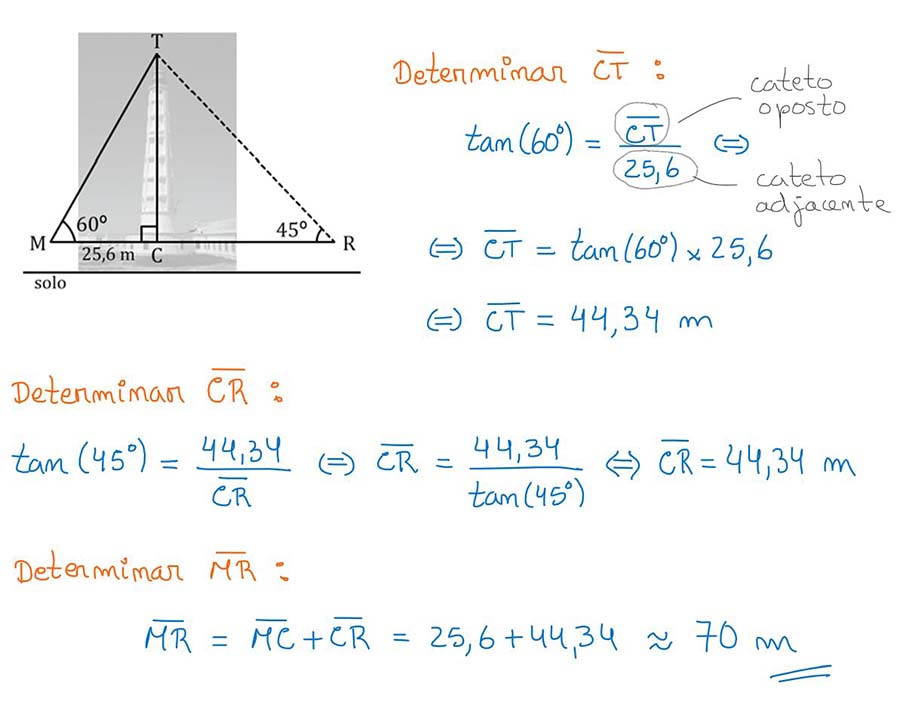 T
60º
45º
M
R
25,6 m
C
solo
Determinar C̅T̅ :
cateto
oposto
tan(60º) = C̅T̅ / 25,6 ⇔
cateto
adjacente
⇔ C̅T̅ = tan(60º) × 25,6
⇔ C̅T̅ = 44,34 m
Determinar C̅R̅ :
tan(45º) = 44,34 / C̅R̅ ⇔ C̅R̅ = 44,34 / tan(45º) ⇔ C̅R̅ = 44,34 m
Determinar M̅R̅ :
M̅R̅ = M̅C̅ + C̅R̅ = 25,6 + 44,34 ≈ 70 m